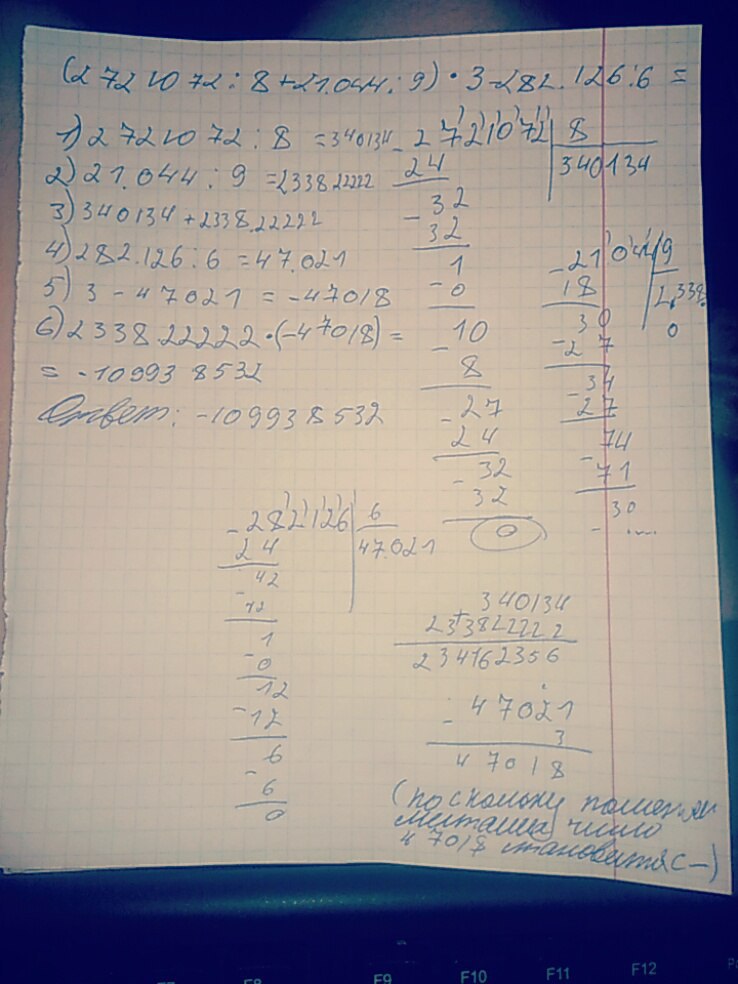 (2721072 : 8 + 21.044 : 9) · 3 - 282.126 : 6 =
1) 2721072 : 8 = 340134
2) 21.044 : 9 = 2338.22222
3) 340134 + 2338.22222
4) 282.126 : 6 = 47.021
5) 3 - 47021 = -47018
6) 2338.22222 · (-47018) =
= -109938532
Ответ: -109938532
- 2721072 | 8
24 340134
- 32
32
1
- 0
10
- 8
27
- 24
32
- 32
0
- 21044 | 9
18 2.338.
30 0
- 27
34
- 27
74
- 71
30
- ....
- 282126 | 6
24 47.021
42
- 42
1
- 0
12
- 12
6
- 6
0
340134
+
233822222
234162356
- 47021
3
47018
(поскольку
число
47018 становится с -)
F8 F9 F10 F11 F12